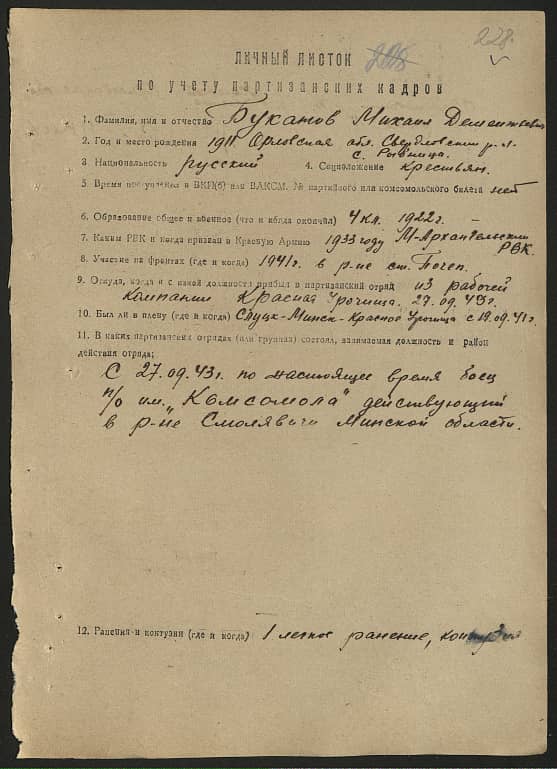 228.
ЛИЧНЫЙ ЛИСТОК
по учету партизанских кадров
1. Фамилия, имя и отчество Буканов Михаил Дементьевич
2. Год и место рождения 1911 Орловская обл. Свердловский р-н.
с.
3 Национальность русский 4. Соцположение крестьян.
5. Время поступления в ВКП(б) или ВЛКСМ, № партийного или комсомольского билета нет
6. Образование общее и военное (что и когда окончил) 4 кл. 1922г. –
7. Каким РВК и когда призван в Красную Армию 1933 году М-Архангельский
РВК.
8. Участие на фронтах (где и когда) 1941г. в р-не ст. Почеп.
9. Откуда, когда и с какой должности прибыл в партизанский отряд из рабочей
компании Красная Урочища. 27.09.43г.
10. Был ли в плену (где и когда) Слуцк-Минск-Красное Урочища с 19.09.41г.
11. В каких партизанских отрядах (или группах) состоял, занимаемая должность и район
действия отряда;
С 27.09.43г. по настоящее время боец
п/о им. „Комсомола" действующий
в р-не Смолявичи Минской области.
12. Ранения и контузии (где и когда) 1 легкое ранение, контузия